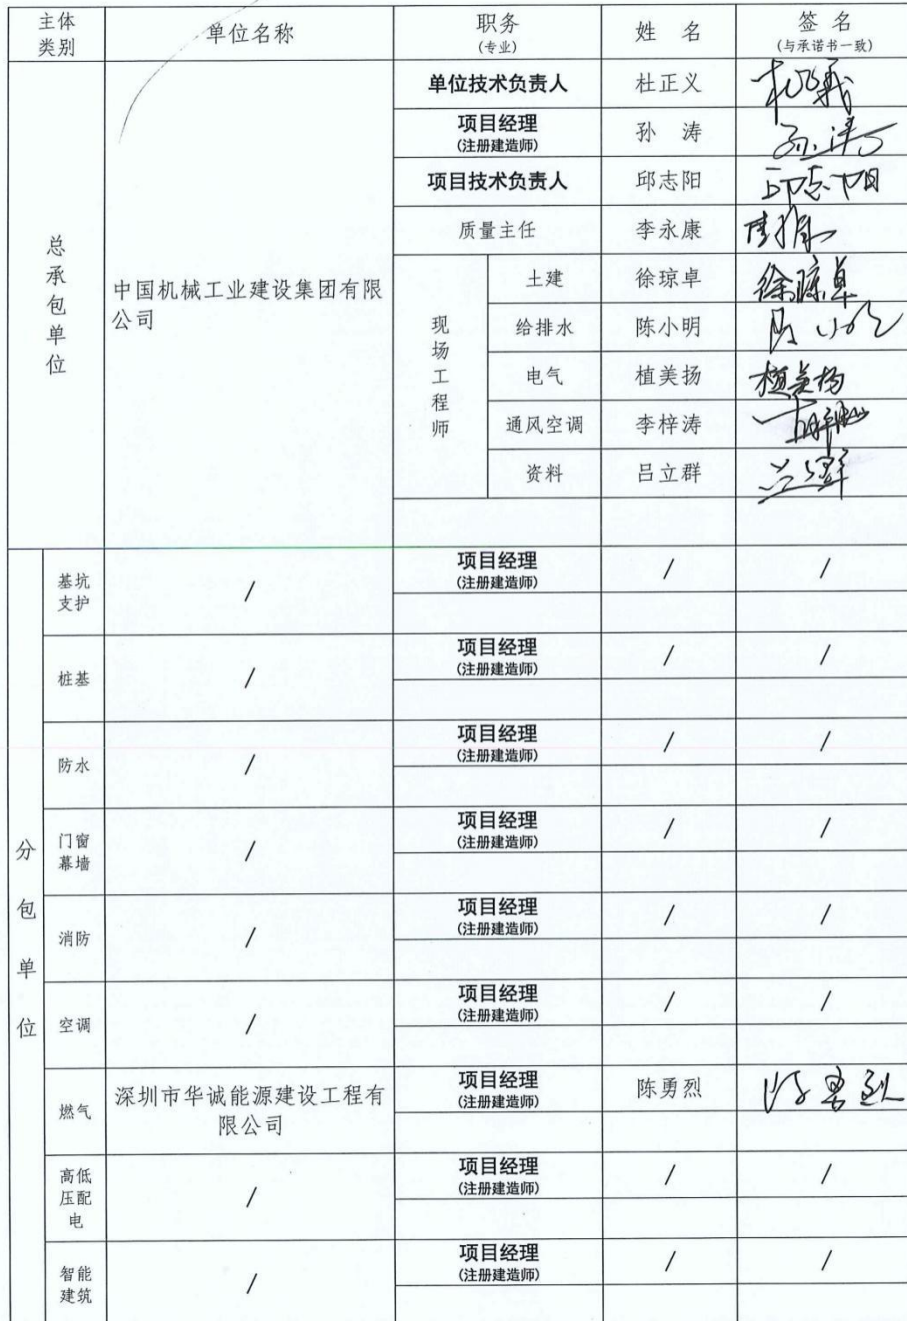 主体类别 单位名称 职务(专业) 姓 名 签 名(与承诺书一致)
总承包单位 中国机械工业建设集团有限公司
单位技术负责人 杜正义
项目经理(注册建造师) 孙 涛 孙涛
项目技术负责人 邱志阳 邱志阳
质量主任 李永康
现场工程师
土建 徐琼卓 徐琼卓
给排水 陈小明
电气 植美扬 植美扬
通风空调 李梓涛
资料 吕立群
分包单位
基坑支护 / 项目经理(注册建造师) / /
桩基 / 项目经理(注册建造师) / /
防水 / 项目经理(注册建造师) / /
门窗幕墙 / 项目经理(注册建造师) / /
消防 / 项目经理(注册建造师) / /
空调 / 项目经理(注册建造师) / /
燃气 深圳市华诚能源建设工程有限公司 项目经理(注册建造师) 陈勇烈 陈勇烈
高低压配电 / 项目经理(注册建造师) / /
智能建筑 / 项目经理(注册建造师) / /